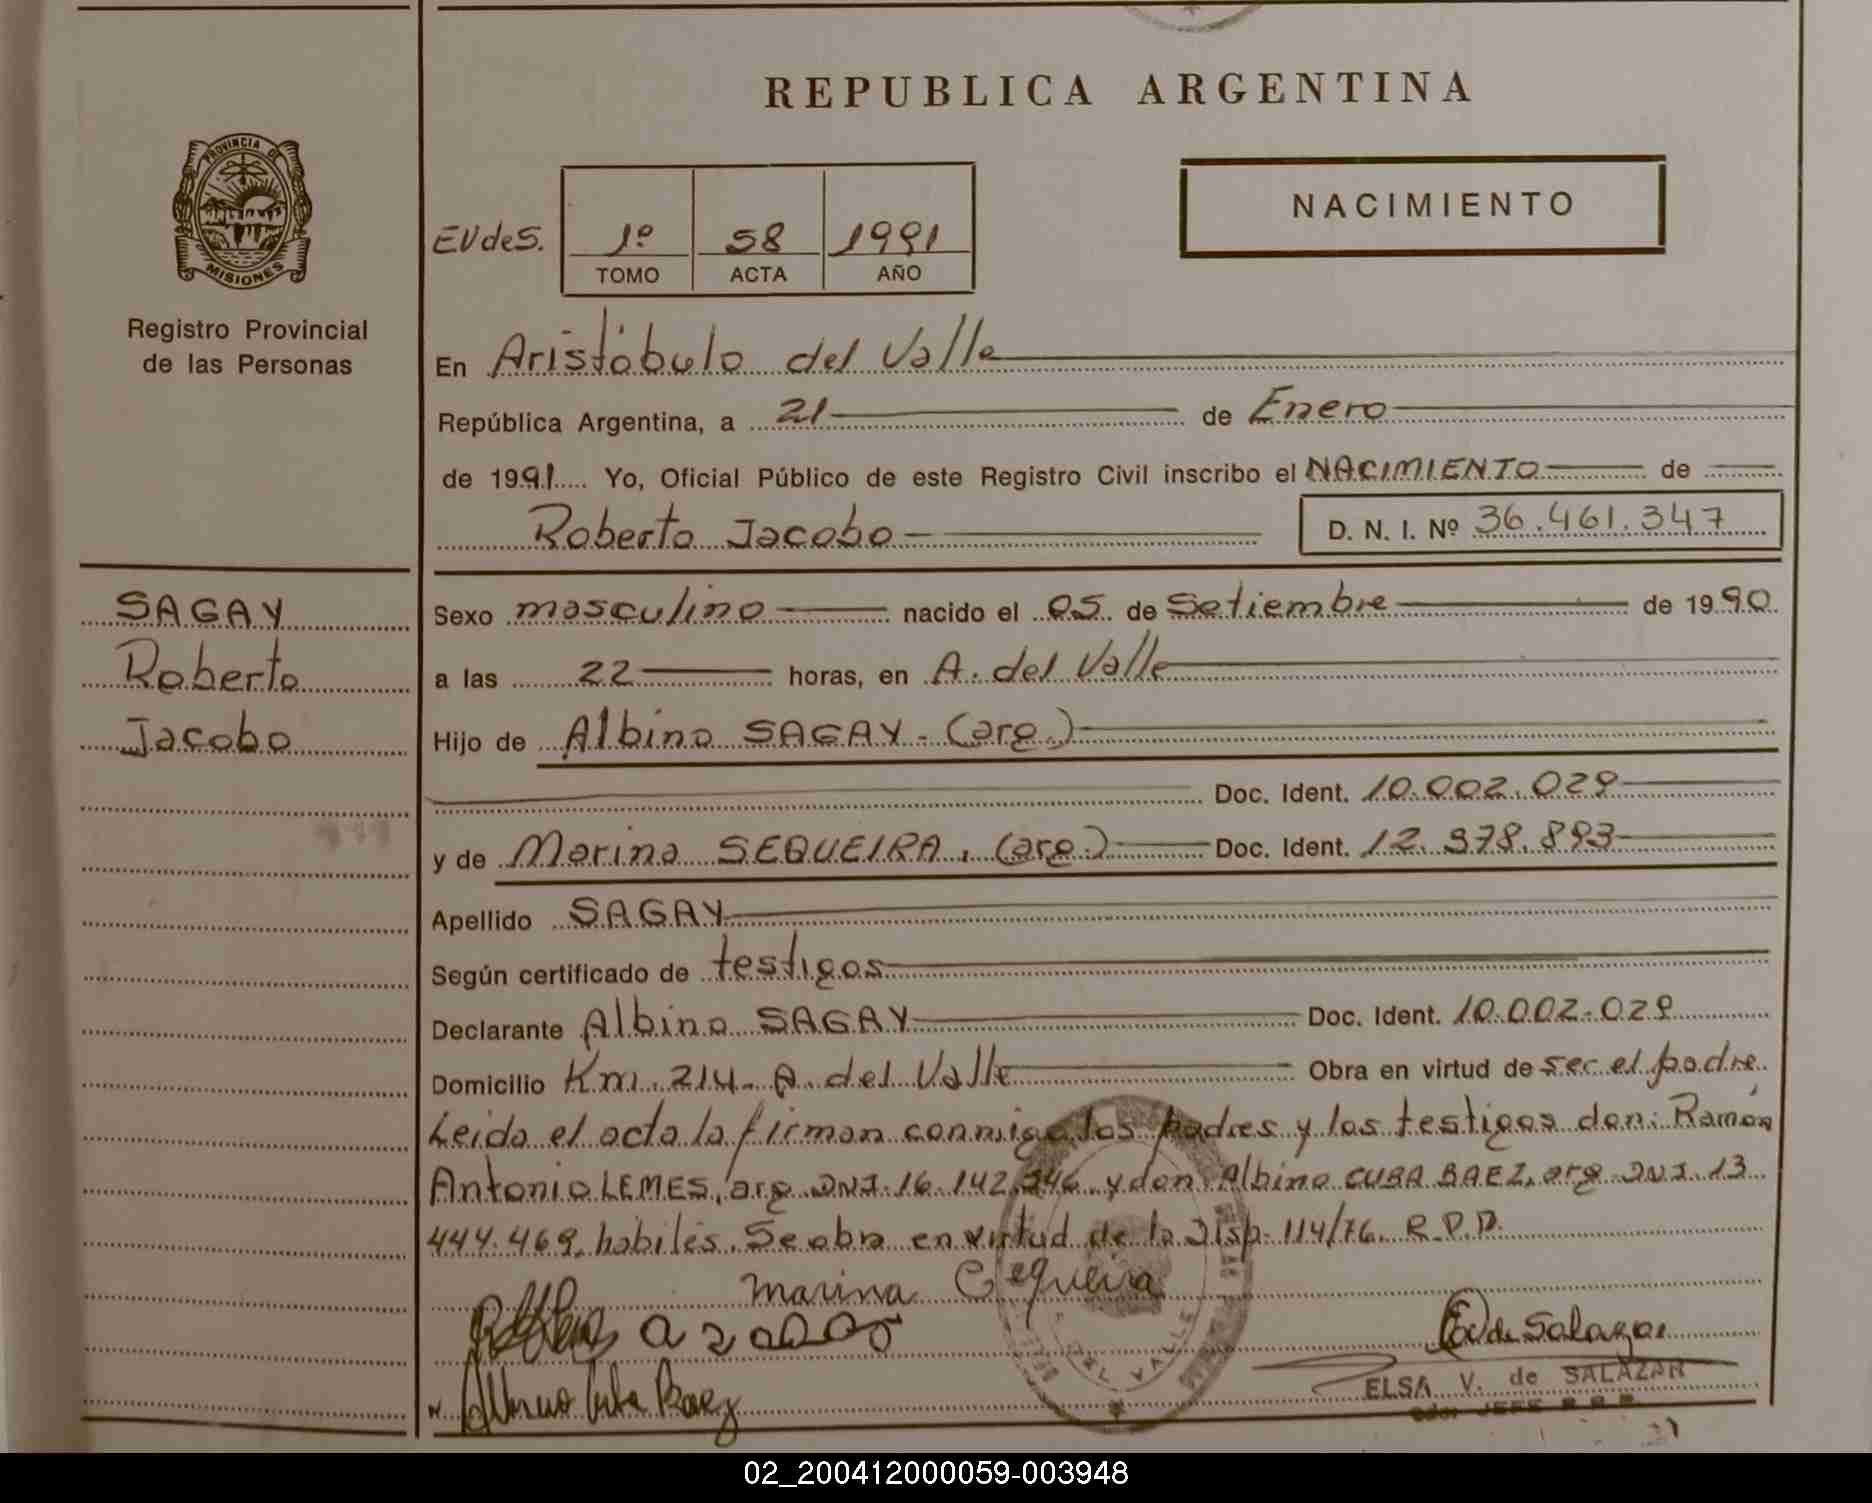 REPUBLICA ARGENTINA
PROVINCIA DE
MISIONES
Registro Provincial
de las Personas
NACIMIENTO
EVdeS. 1º 58 1991
TOMO ACTA AÑO
En Aristóbulo del Valle
República Argentina, a 21 de Enero
de 1991 Yo, Oficial Público de este Registro Civil inscribo el NACIMIENTO de
Roberto Jacobo D. N. I. Nº 36.461.347
SAGAY
Roberto
Jacobo
Sexo masculino nacido el 05 de Setiembre de 1990
a las 22 horas, en A. del Valle
Hijo de Albino SAGAY - (arg.)
Doc. Ident. 10.002.029
y de Marina SEQUEIRA, (arg.) Doc. Ident. 12.978.893
Apellido SAGAY
Según certificado de testigos
Declarante Albino SAGAY Doc. Ident. 10.002.029
Domicilio Km. 214. A. del Valle Obra en virtud de ser el padre.
Leida el acta la firman conmigo los padres y los testigos don: Ramón
Antonio LEMES, arg. DNI. 16.142.246 y don Albino CUBA BAEZ, arg. DNI. 13
444.469, hábiles. Se obra en virtud de la Disp. 114/76. R.P.P.
Marina Cequeira
EVde Salazar
DEL VALLE
Albino Cuba Baez
ELSA V. de SALAZAR
JEFE R.P.P.
02_200412000059-003948